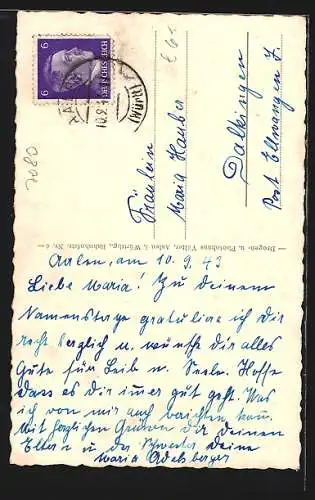 DEUTSCHES REICH
6 6
(Württ)
10.9.4
E 61
7080
Fräulein
Maria Hauber
Dalkingen
Post Ellwangen J.
Drogen- u. Photohaus Vilter, Aalen i. Württbg., Bahnhofstr. Nr. 6
Aalen, am 10.9.43
Liebe Maria! Zu deinem
Namenstage gratuliere ich Dir
recht herzlich u. wünsche dir alles
Gute für Leib u. Seele. Hoffe
dass es dir immer gut geht. Was
ich von mir auch berichten kann.
Mit herzlichen Grüssen dir deinen
Eltern u. der Schwester deine
Maria Adelsberger